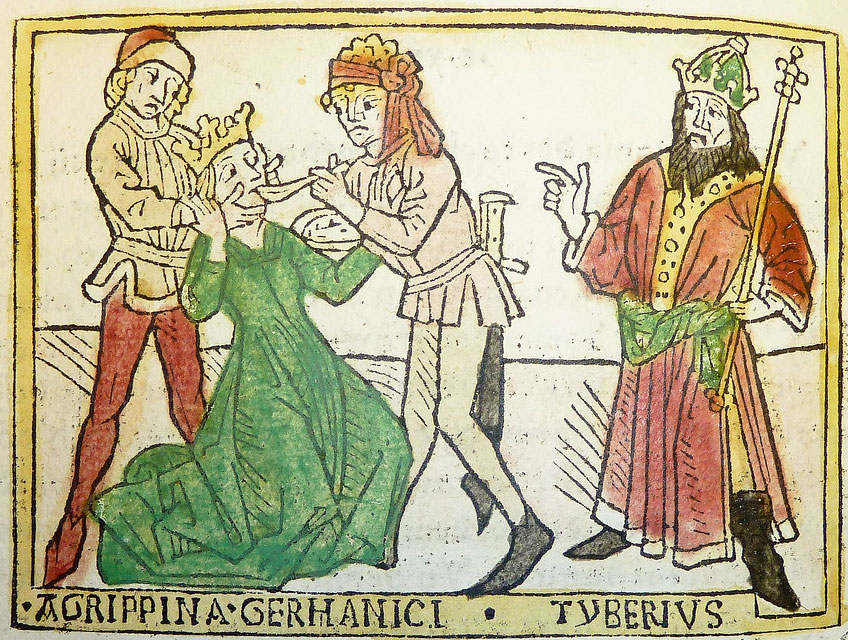 ·AGRIPPINA·GERMANICI · TYBERIVS